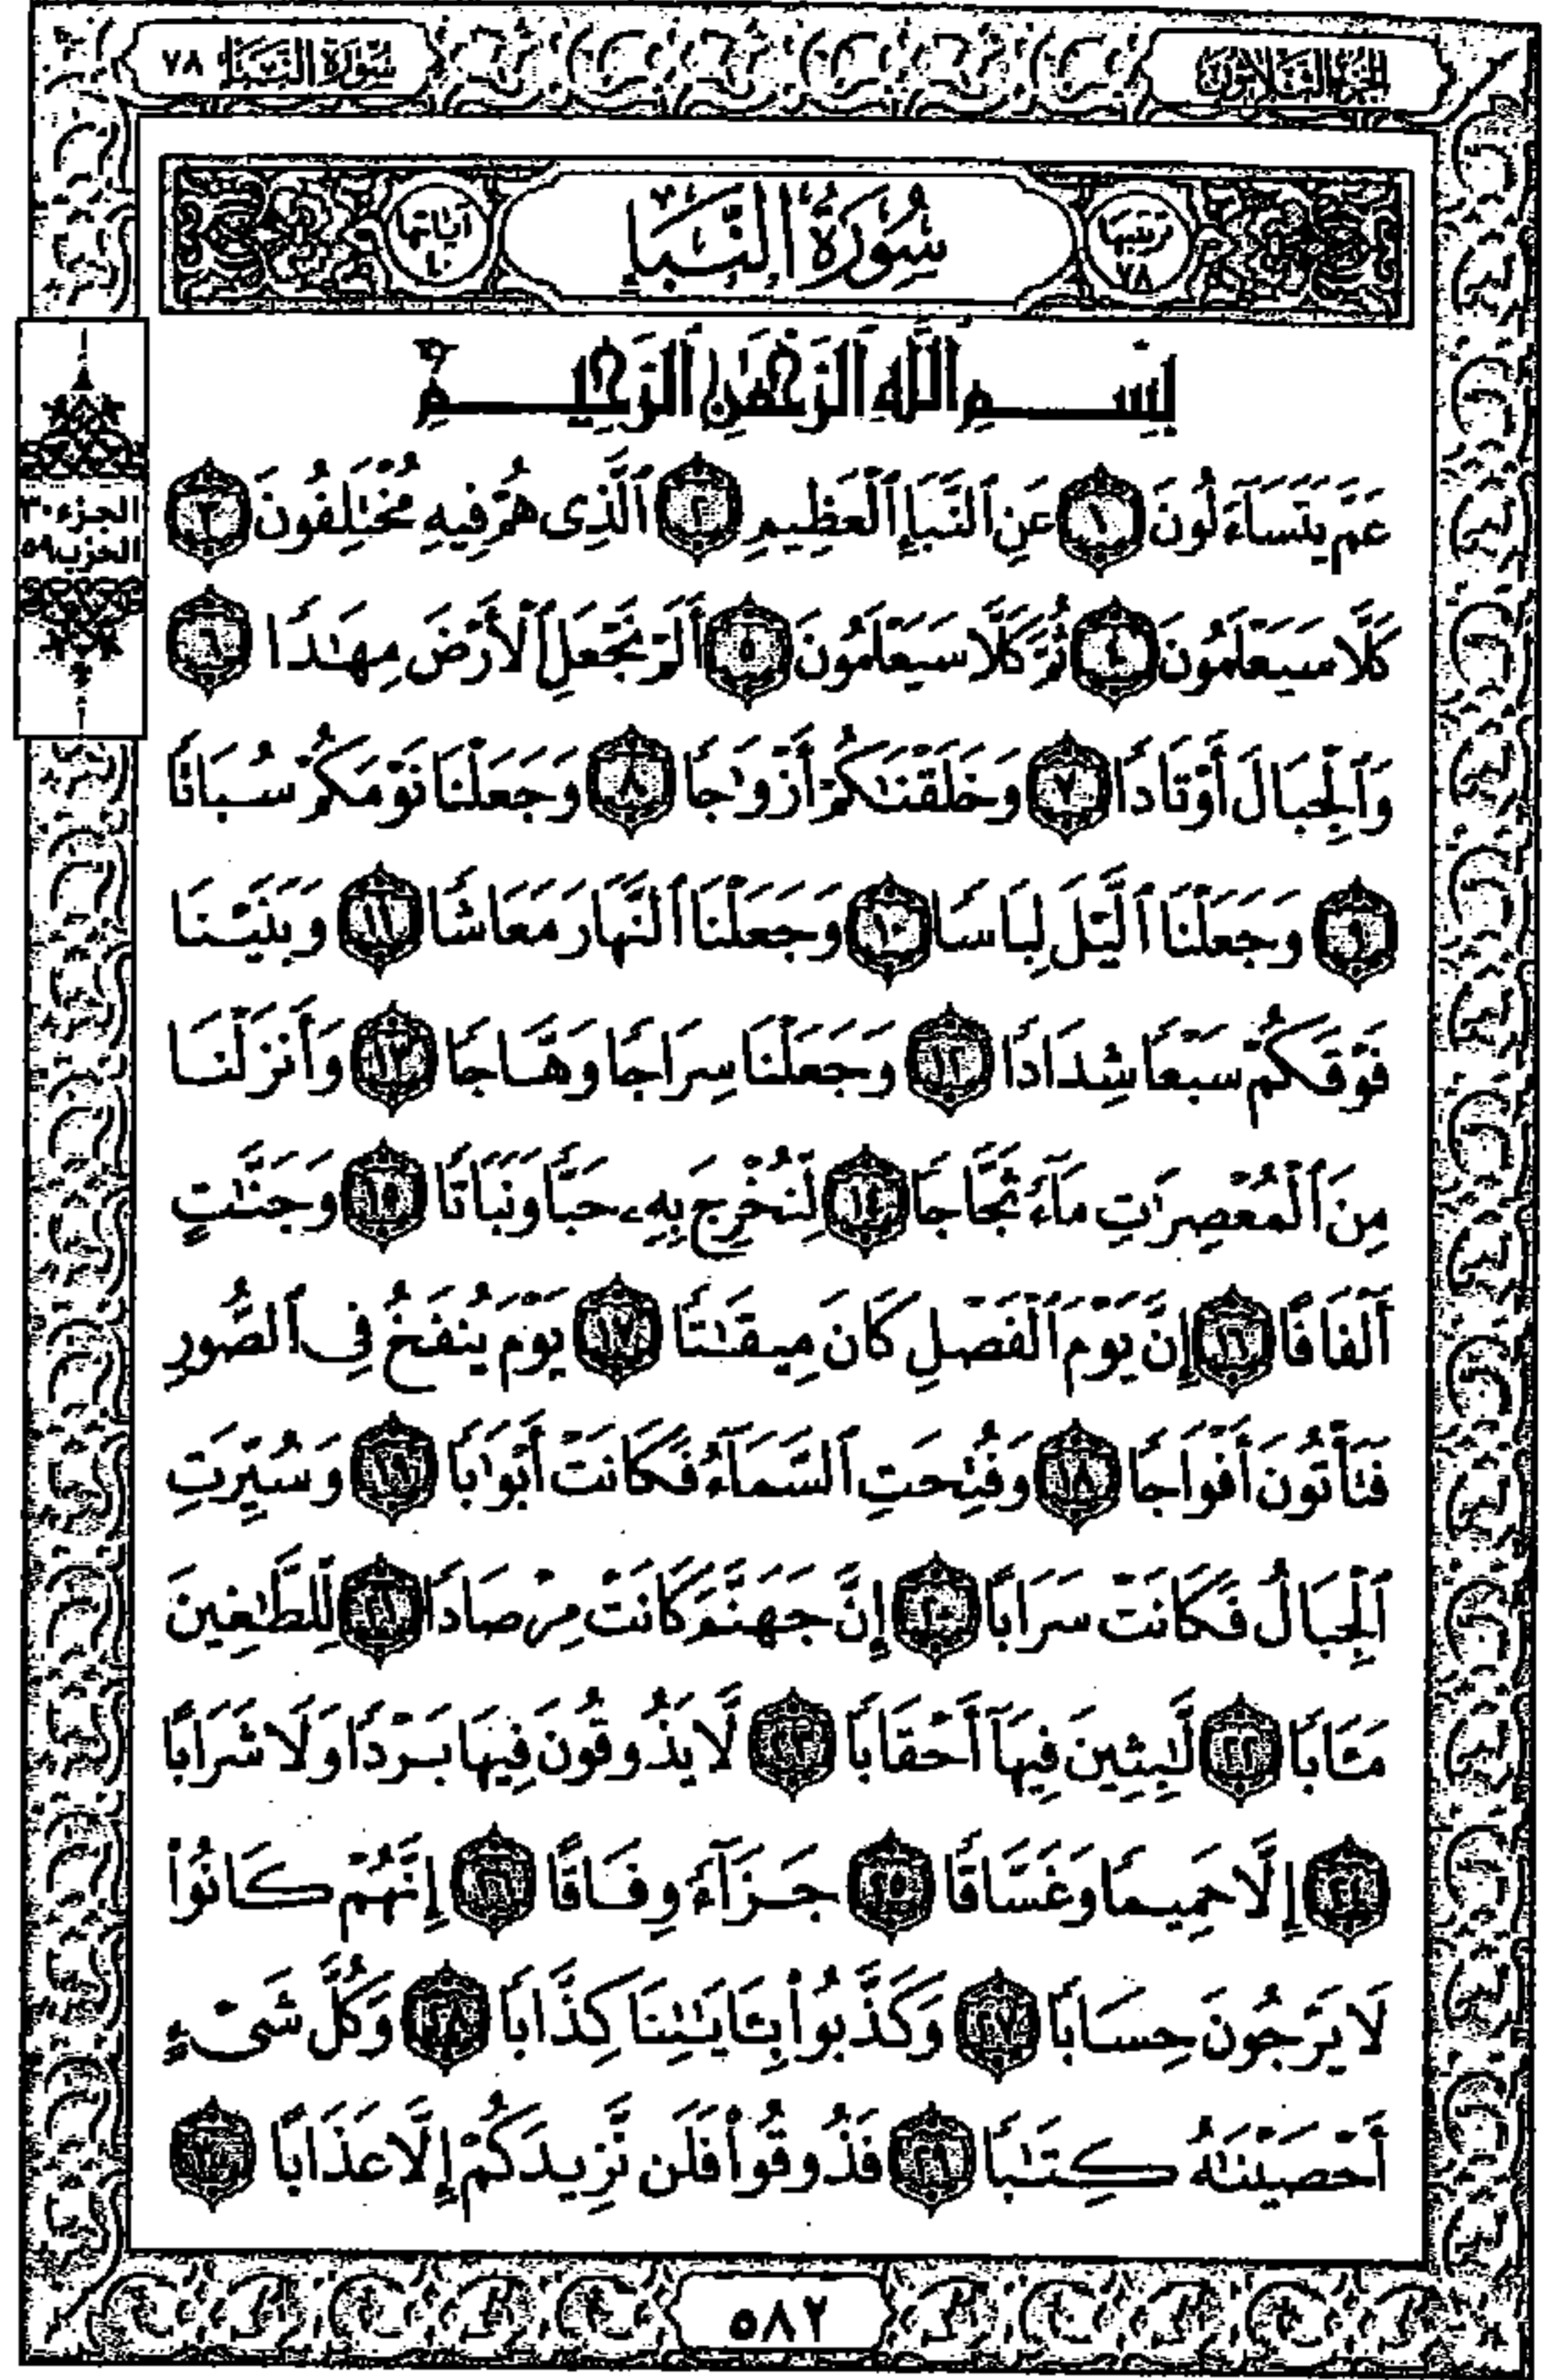 الجزء الثلاثون
سورة النبأ ٧٨
ترتيبها ٧٨
سُورَةُ النَّبَإِ
آياتها ٤٠
بِسْمِ ٱللَّهِ ٱلرَّحْمَٰنِ ٱلرَّحِيمِ
الجزء ٣٠
الحزب ٥٩
عَمَّ يَتَسَآءَلُونَ ١ عَنِ ٱلنَّبَإِ ٱلْعَظِيمِ ٢ ٱلَّذِى هُمْ فِيهِ مُخْتَلِفُونَ ٣
كَلَّا سَيَعْلَمُونَ ٤ ثُمَّ كَلَّا سَيَعْلَمُونَ ٥ أَلَمْ نَجْعَلِ ٱلْأَرْضَ مِهَٰدًا ٦
وَٱلْجِبَالَ أَوْتَادًا ٧ وَخَلَقْنَٰكُمْ أَزْوَٰجًا ٨ وَجَعَلْنَا نَوْمَكُمْ سُبَاتًا
٩ وَجَعَلْنَا ٱلَّيْلَ لِبَاسًا ١٠ وَجَعَلْنَا ٱلنَّهَارَ مَعَاشًا ١١ وَبَنَيْنَا
فَوْقَكُمْ سَبْعًا شِدَادًا ١٢ وَجَعَلْنَا سِرَاجًا وَهَّاجًا ١٣ وَأَنزَلْنَا
مِنَ ٱلْمُعْصِرَٰتِ مَآءً ثَجَّاجًا ١٤ لِّنُخْرِجَ بِهِۦ حَبًّا وَنَبَاتًا ١٥ وَجَنَّٰتٍ
أَلْفَافًا ١٦ إِنَّ يَوْمَ ٱلْفَصْلِ كَانَ مِيقَٰتًا ١٧ يَوْمَ يُنفَخُ فِى ٱلصُّورِ
فَتَأْتُونَ أَفْوَاجًا ١٨ وَفُتِحَتِ ٱلسَّمَآءُ فَكَانَتْ أَبْوَٰبًا ١٩ وَسُيِّرَتِ
ٱلْجِبَالُ فَكَانَتْ سَرَابًا ٢٠ إِنَّ جَهَنَّمَ كَانَتْ مِرْصَادًا ٢١ لِّلطَّٰغِينَ
مَـَٔابًا ٢٢ لَّٰبِثِينَ فِيهَآ أَحْقَابًا ٢٣ لَّا يَذُوقُونَ فِيهَا بَرْدًا وَلَا شَرَابًا
٢٤ إِلَّا حَمِيمًا وَغَسَّاقًا ٢٥ جَزَآءً وِفَاقًا ٢٦ إِنَّهُمْ كَانُوا۟
لَا يَرْجُونَ حِسَابًا ٢٧ وَكَذَّبُوا۟ بِـَٔايَٰتِنَا كِذَّابًا ٢٨ وَكُلَّ شَىْءٍ
أَحْصَيْنَٰهُ كِتَٰبًا ٢٩ فَذُوقُوا۟ فَلَن نَّزِيدَكُمْ إِلَّا عَذَابًا ٣٠
٥٨٢